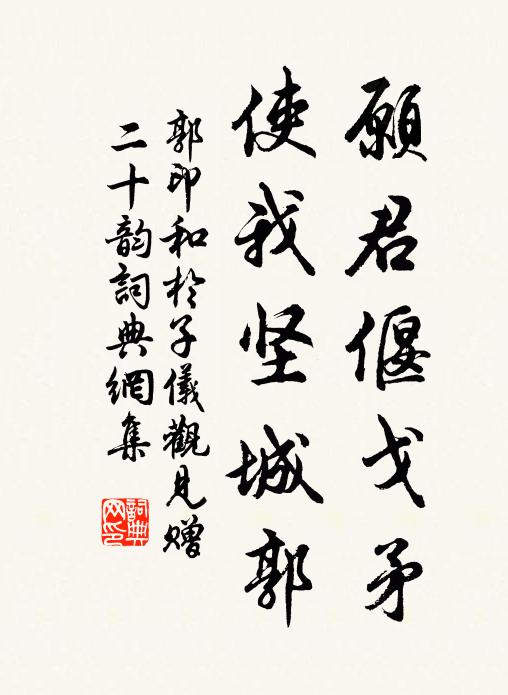 願君偃戈矛
使我坚城郭
郭印和於子儀觀見赠
二十韵詞典網集
詞典
网印